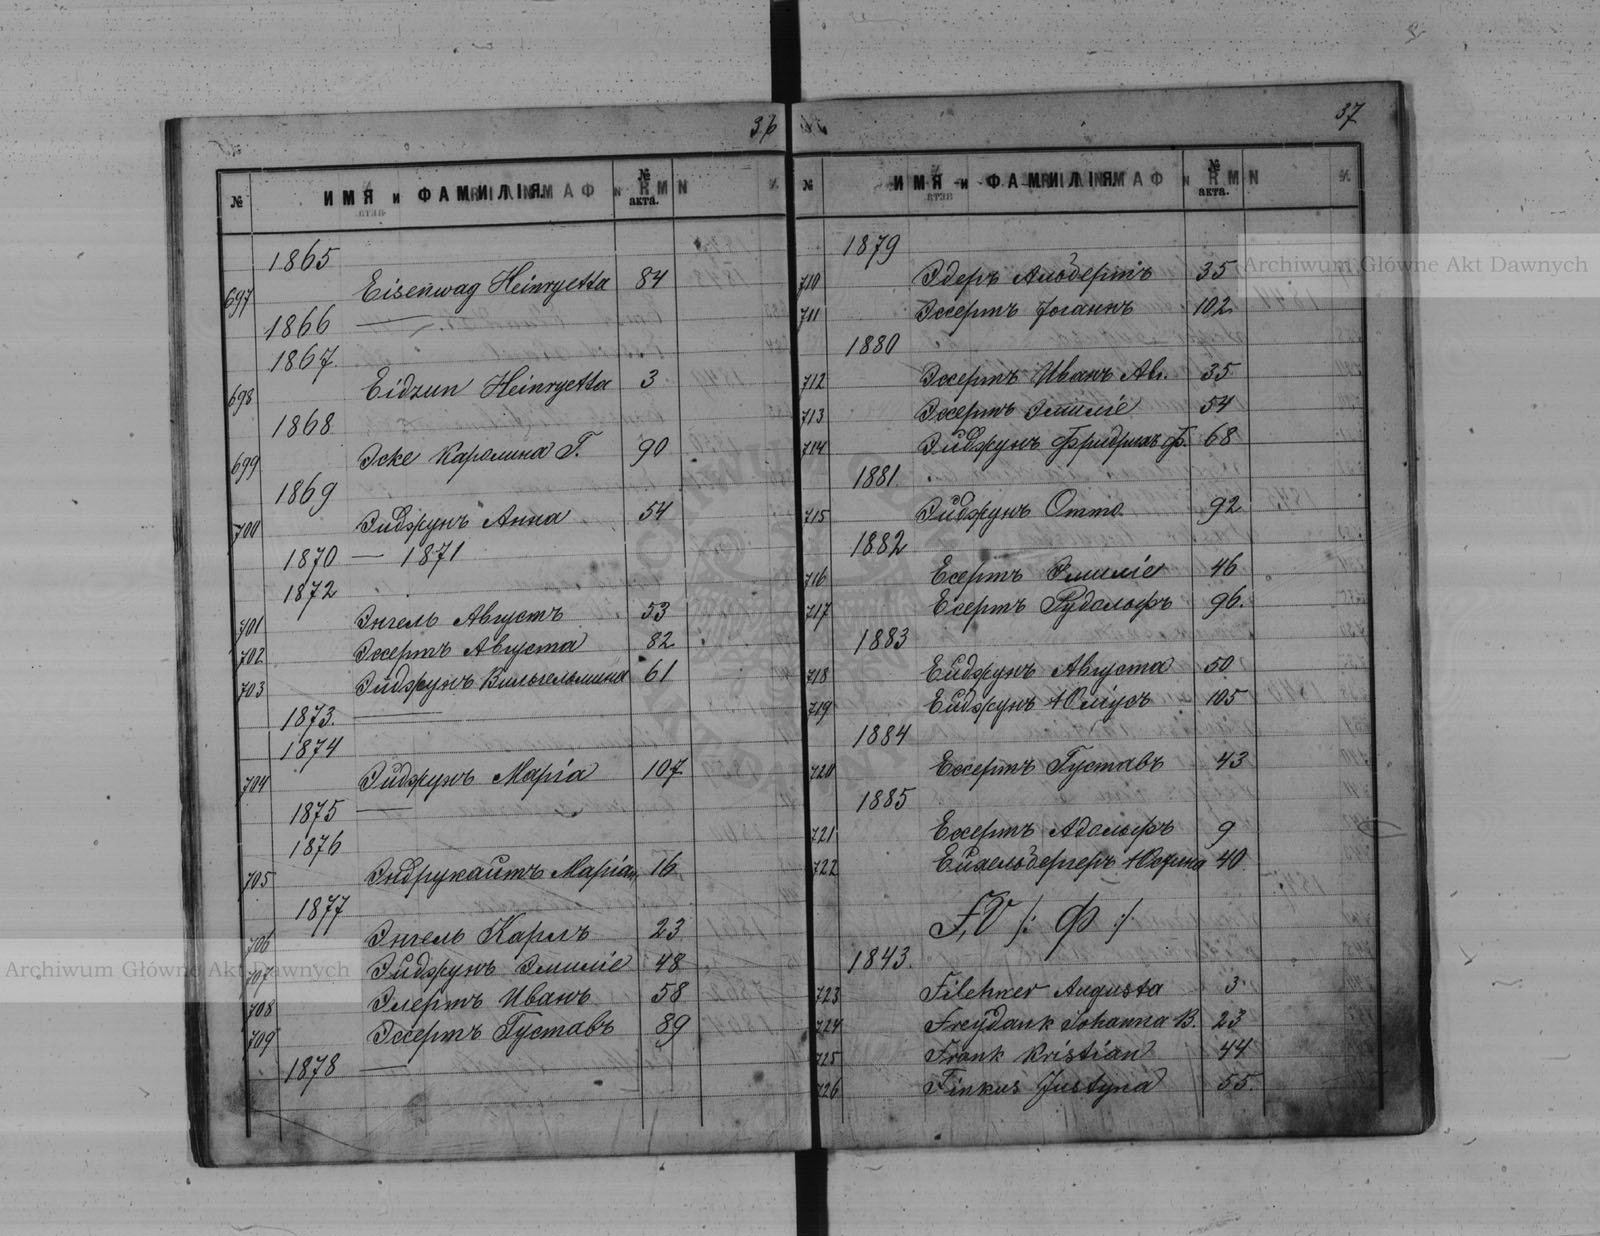 36
№ ИМЯ и ФАМИЛІЯ № акта.
1865
697 Eisenwag Heinryetta 84
1866 —
1867
698 Eidzun Heinryetta 3
1868
699 Эске Каролина Г. 90
1869
700 Эйджунъ Анна 54
1870 — 1871
1872
701 Энгель Августъ 53
702 Эссертъ Августа 82
703 Эйджунъ Вильгельмина 61
1873. —
1874
704 Эйджунъ Марія 107
1875 —
1876
705 Эндрукайтъ Маріан. 16
1877
706 Энгель Карлъ 23
707 Эйджунъ Эмиліе 48
708 Элертъ Иванъ 58
709 Эссертъ Густавъ 89
1878 —
37
№ ИМЯ и ФАМИЛІЯ № акта.
1879
710 Эдеръ Альбертъ 35
711 Эссертъ Іоганнъ 102
1880
712 Эссертъ Иванъ Ав. 35
713 Эссертъ Эмиліе 54
714 Эйджунъ Фридрихъ Ф. 68
1881.
715 Эйджунъ Отто 92
1882
716 Есертъ Эмиліе 46
717 Есертъ Рудольфъ 96.
1883
718 Ейджунъ Августа 50
719 Ейджунъ Юліусъ 105
1884
720 Ессертъ Густавъ 43
1885
721 Ессертъ Адольфъ 9
722 40
F, V /: Ф :/
1843.
723 Filehner Augusta 3
724 Freydank Johanna B. 23
725 Frank Kristian 44
726 Finkus Justyna 55.
Archiwum Główne Akt Dawnych
Archiwum Główne Akt Dawnych